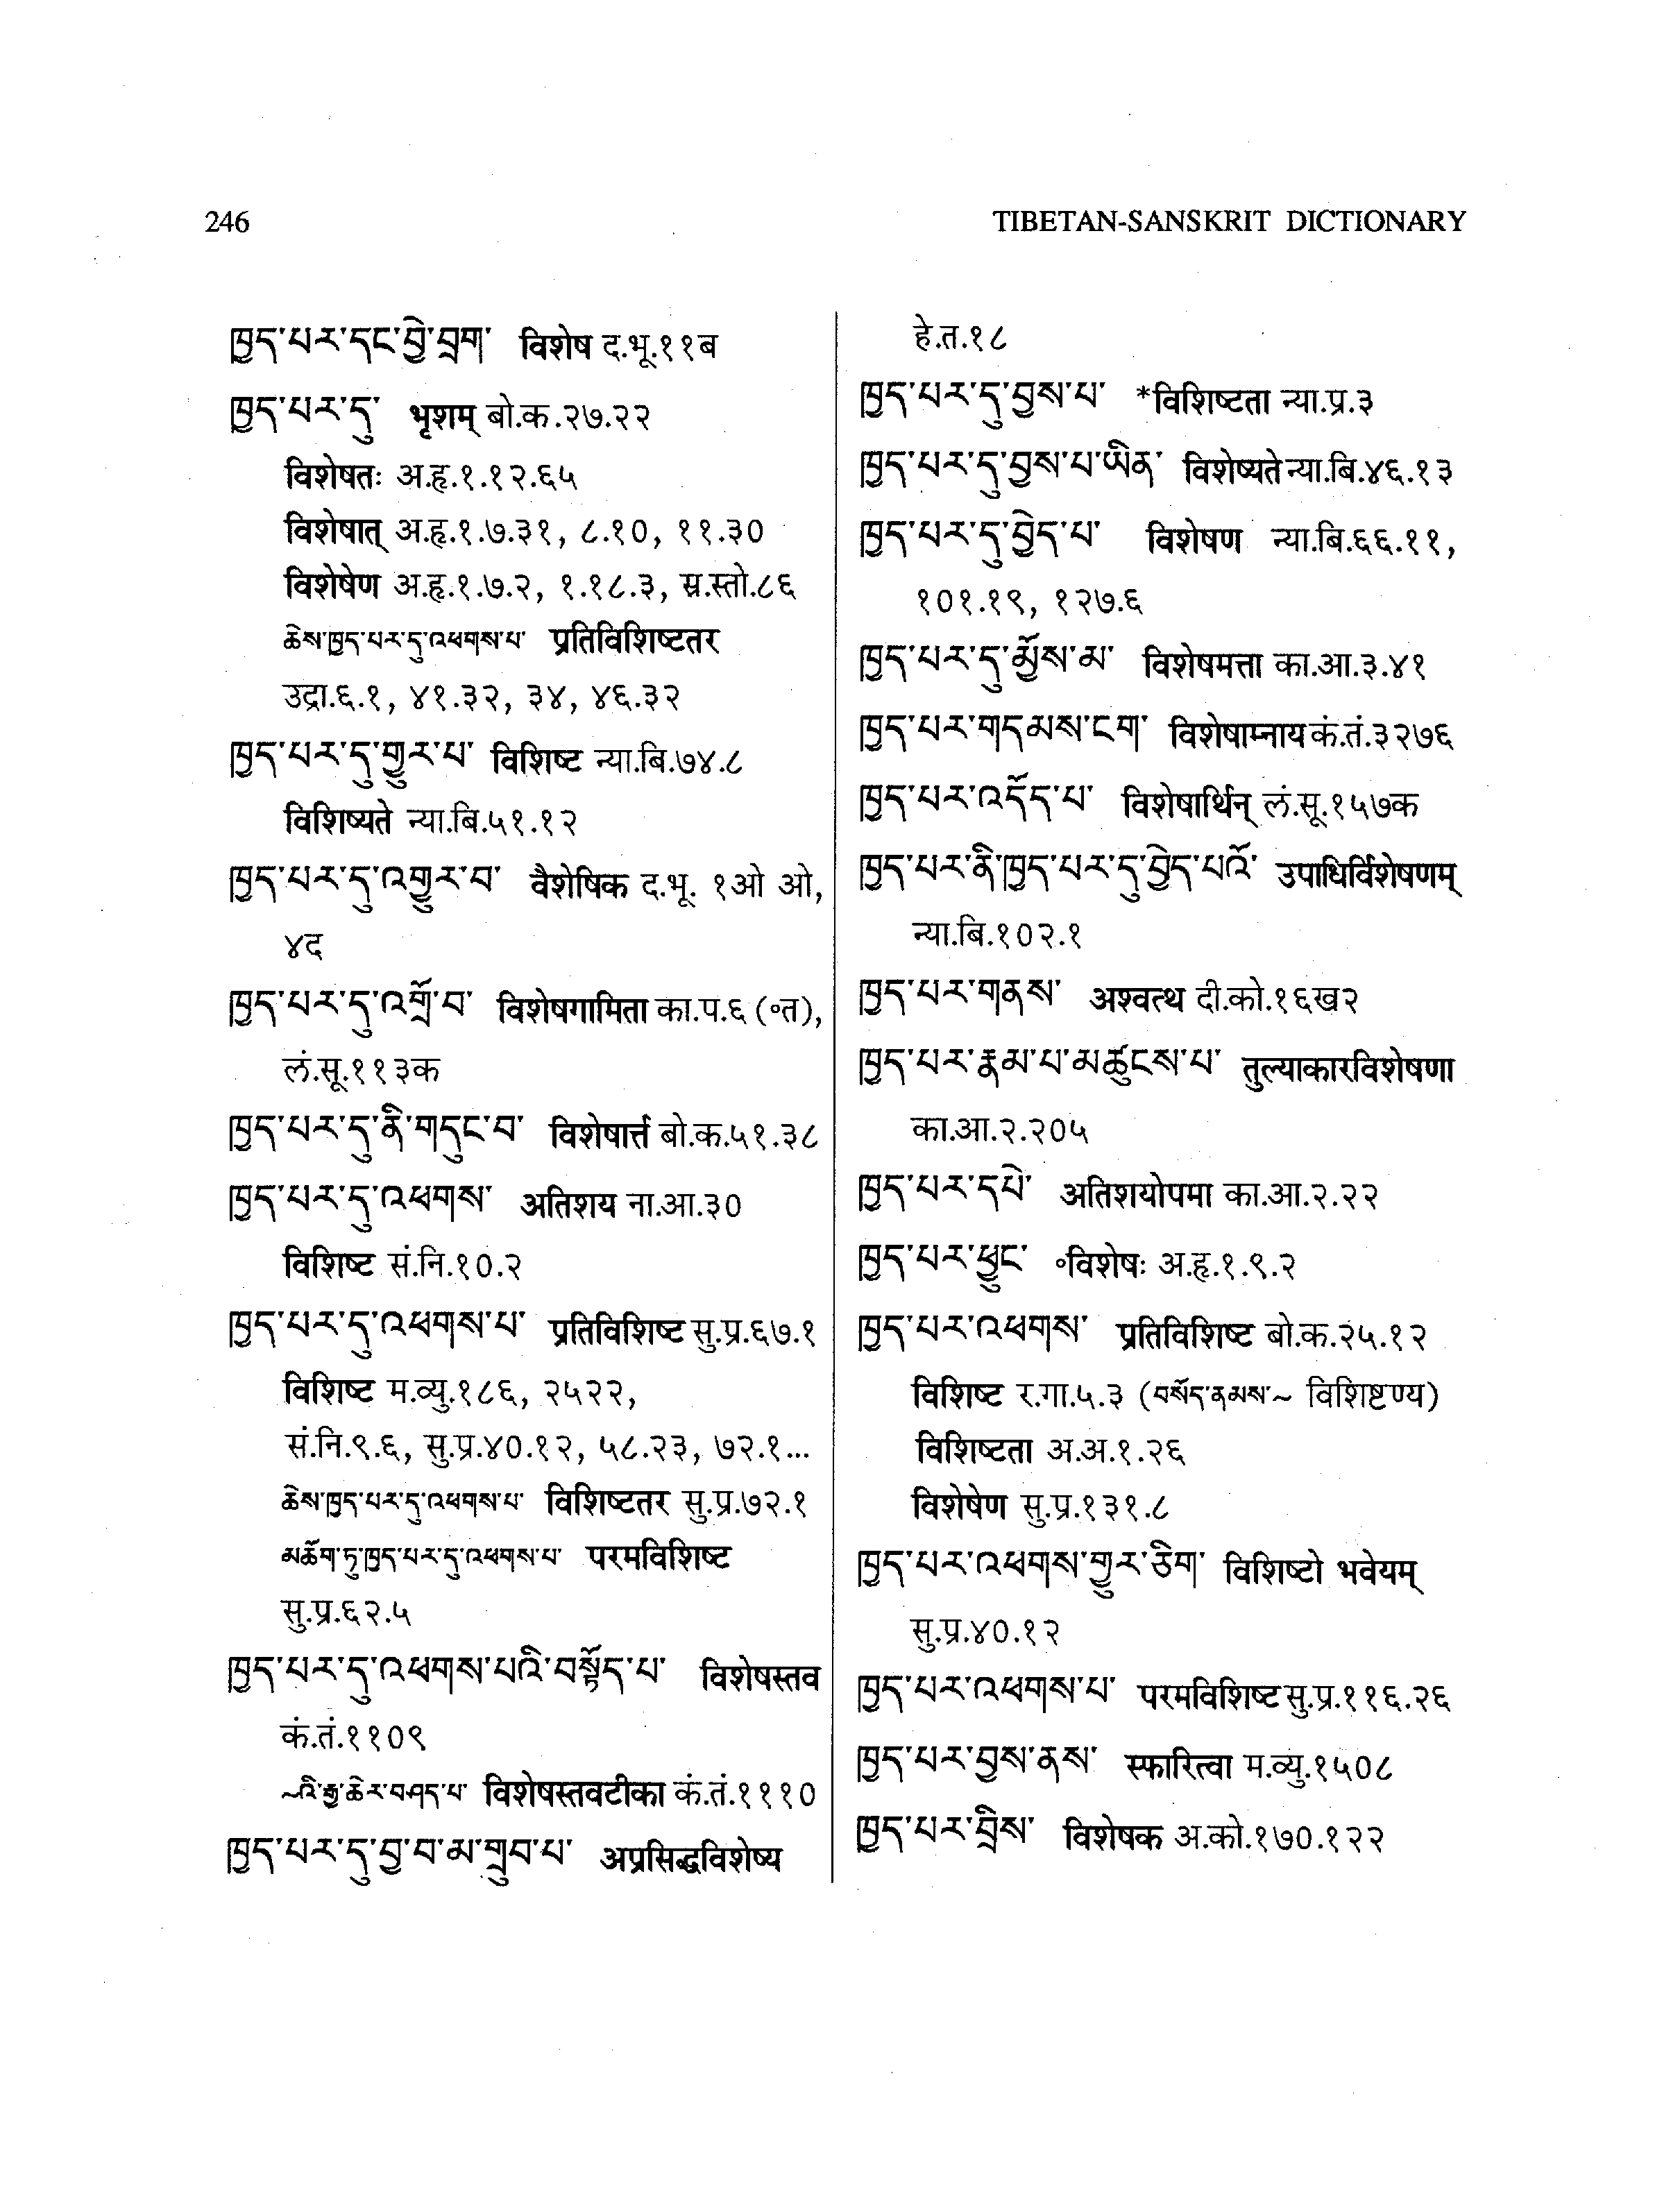 246
TIBETAN-SANSKRIT DICTIONARY
ཁྱད་པར་དང་བྱེ་བྲག་ विशेष द.भू.११ब
ཁྱད་པར་དུ་ भृशम् बो.क.२७.२२
विशेषतः अ.हृ.१.१२.६५
विशेषात् अ.हृ.१.७.३१, ८.१०, ११.३०
विशेषेण अ.हृ.१.७.२, १.१८.३, स्र.स्तो.८६
ཆེས་ཁྱད་པར་དུ་འཕགས་པ་ प्रतिविशिष्टतर
उद्रा.६.१, ४१.३२, ३४, ४६.३२
ཁྱད་པར་དུ་གྱུར་པ་ विशिष्ट न्या.बि.७४.८
विशिष्यते न्या.बि.५१.१२
ཁྱད་པར་དུ་འགྱུར་བ་ वैशेषिक द.भू. १ओ ओ,
४द
ཁྱད་པར་དུ་འགྲོ་བ་ विशेषगामिता का.प.६ (॰त),
लं.सू.११३क
ཁྱད་པར་དུ་ནི་གདུང་བ་ विशेषार्त्त बो.क.५१.३८
ཁྱད་པར་དུ་འཕགས་ अतिशय ना.आ.३०
विशिष्ट सं.नि.१०.२
ཁྱད་པར་དུ་འཕགས་པ་ प्रतिविशिष्ट सु.प्र.६७.१
विशिष्ट म.व्यु.१८६, २५२२,
सं.नि.९.६, सु.प्र.४०.१२, ५८.२३, ७२.१...
ཆེས་ཁྱད་པར་དུ་འཕགས་པ་ विशिष्टतर सु.प्र.७२.१
མཆོག་ཏུ་ཁྱད་པར་དུ་འཕགས་པ་ परमविशिष्ट
सु.प्र.६२.५
ཁྱད་པར་དུ་འཕགས་པའི་བསྟོད་པ་ विशेषस्तव
कं.तं.११०९
~འི་རྒྱ་ཆེར་བཤད་པ་ विशेषस्तवटीका कं.तं.१११०
ཁྱད་པར་དུ་བྱ་བ་མ་གྲུབ་པ་ अप्रसिद्धविशेष्य
हे.त.१८
ཁྱད་པར་དུ་བྱས་པ་ *विशिष्टता न्या.प्र.३
ཁྱད་པར་དུ་བྱས་པ་ཡིན་ विशेष्यते न्या.बि.४६.१३
ཁྱད་པར་དུ་བྱེད་པ་ विशेषण न्या.बि.६६.११,
१०१.१९, १२७.६
ཁྱད་པར་དུ་མྱོས་མ་ विशेषमत्ता का.आ.३.४१
ཁྱད་པར་གདམས་ངག་ विशेषाम्नाय कं.तं.३२७६
ཁྱད་པར་འདོད་པ་ विशेषार्थिन् लं.सू.१५७क
ཁྱད་པར་ནི་ཁྱད་པར་དུ་བྱེད་པའོ་ उपाधिर्विशेषणम्
न्या.बि.१०२.१
ཁྱད་པར་གནས་ अश्वत्थ दी.को.१६ख२
ཁྱད་པར་རྣམ་པ་མཚུངས་པ་ तुल्याकारविशेषणा
का.आ.२.२०५
ཁྱད་པར་དཔེ་ अतिशयोपमा का.आ.२.२२
ཁྱད་པར་ཕྱུང་ ॰विशेषः अ.हृ.१.९.२
ཁྱད་པར་འཕགས་ प्रतिविशिष्ट बो.क.२५.१२
विशिष्ट र.गा.५.३ (བསོད་ནམས་~ विशिष्टण्य)
विशिष्टता अ.अ.१.२६
विशेषेण सु.प्र.१३१.८
ཁྱད་པར་འཕགས་གྱུར་ཅིག་ विशिष्टो भवेयम्
सु.प्र.४०.१२
ཁྱད་པར་འཕགས་པ་ परमविशिष्ट सु.प्र.११६.२६
ཁྱད་པར་བྱས་ནས་ स्फारित्वा म.व्यु.१५०८
ཁྱད་པར་བྲིས་ विशेषक अ.को.१७०.१२२